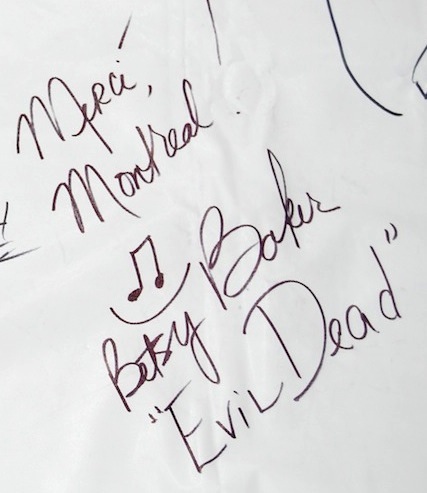 Merci,
Montreal!
Betsy Baker
"Evil Dead"